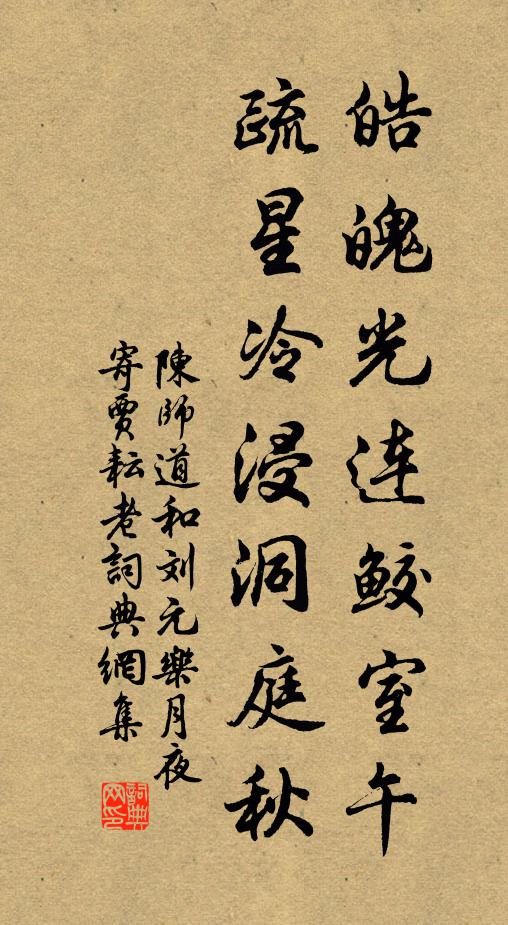 皓魄光连鲛室午
疏星冷浸洞庭秋
陳師道和刘元樂月夜
寄賈耘老詞典網集
詞典网印